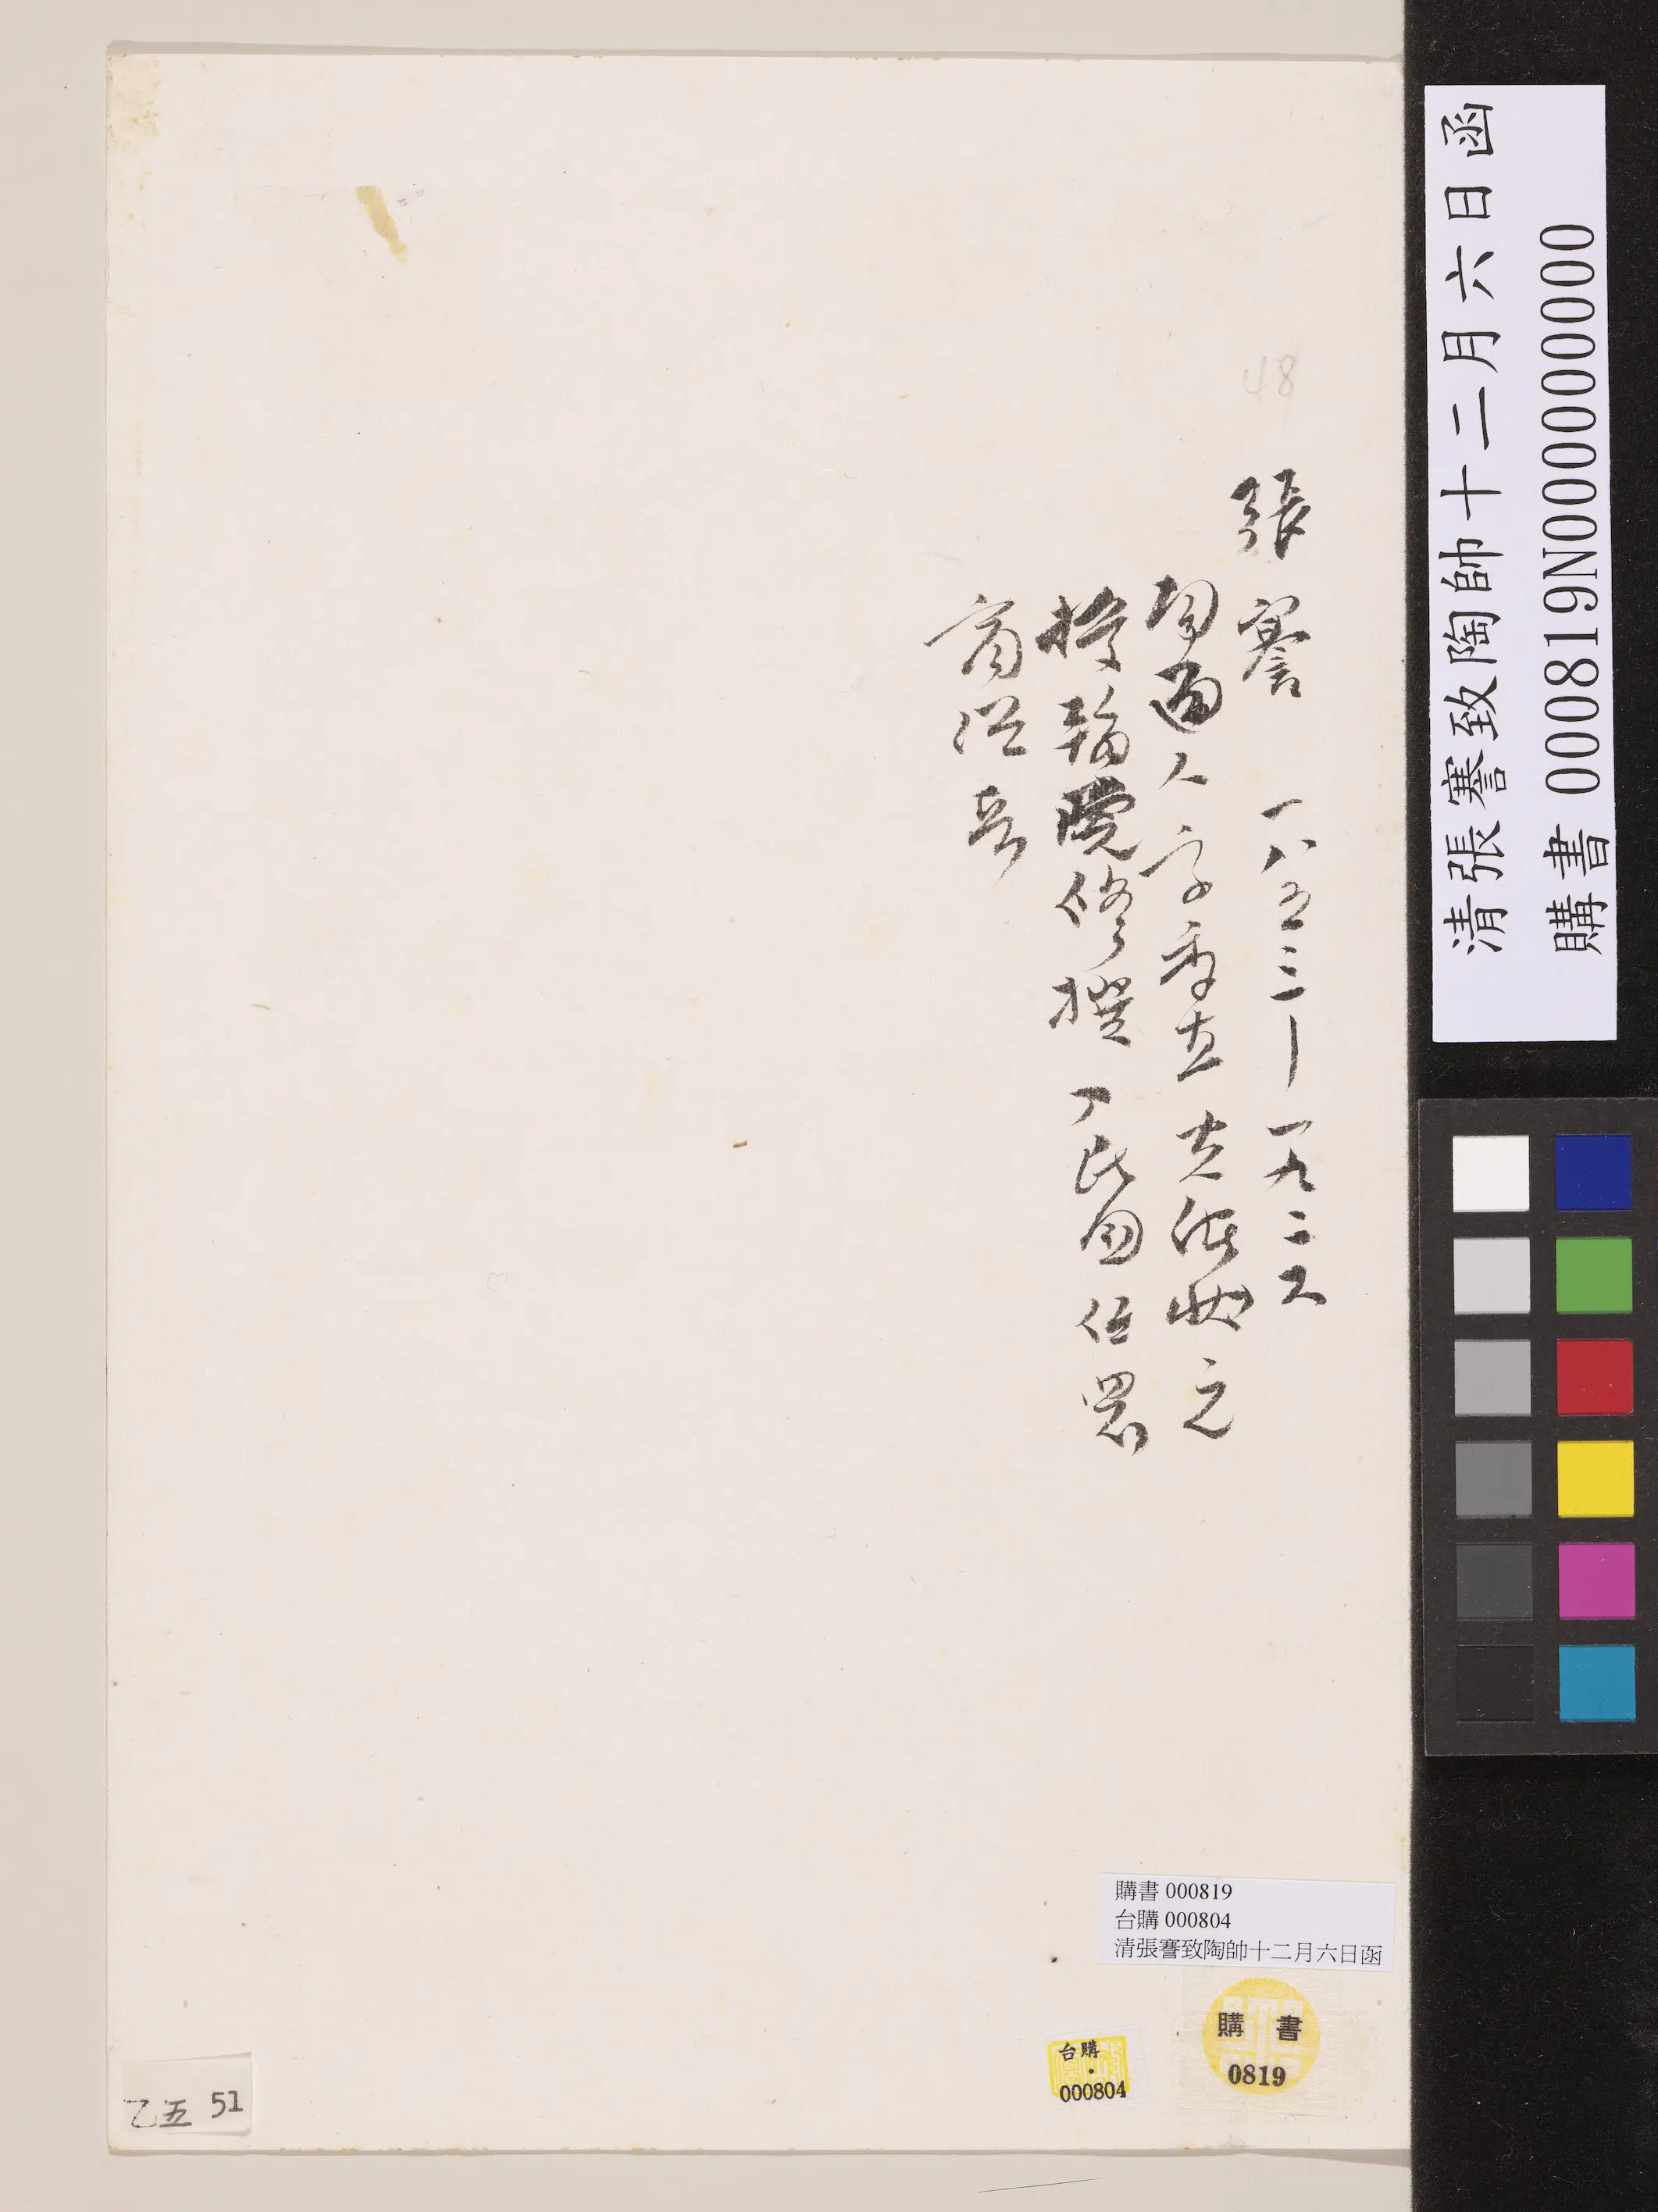 48
張謇 一八五三—一九二六
南通人 字季直 光緒狀元
授翰院修撰 入民國 任農
商總長
購書000819
台購000804
清張謇致陶帥十二月六日函
購書
0819
台購
000804
乙五 51
清張謇致陶帥十二月六日函
購書 000819N000000000